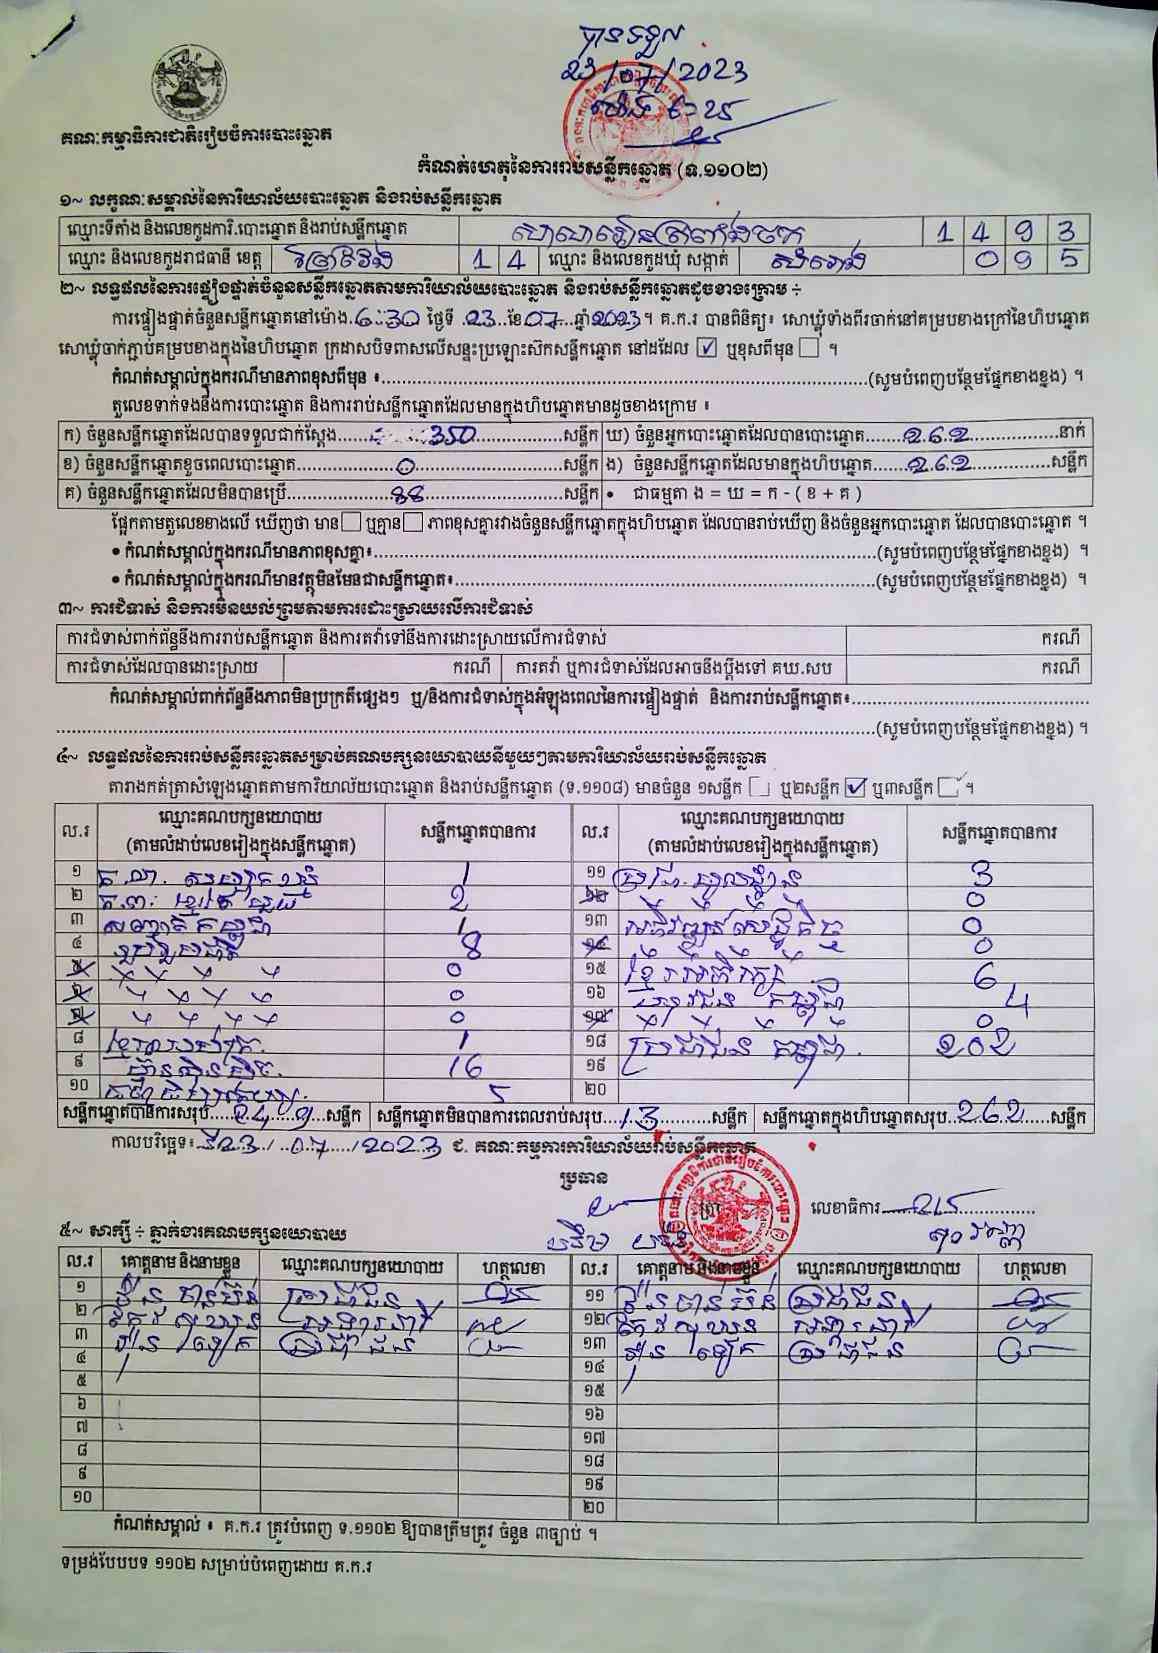 បានទទួល
23/07/2023
គណៈកម្មាធិការជាតិរៀបចំការបោះឆ្នោត
កំណត់ហេតុនៃការរាប់សន្លឹកឆ្នោត (ទ.១១០២)
១~ លក្ខណៈសម្គាល់នៃការិយាល័យបោះឆ្នោត និងរាប់សន្លឹកឆ្នោត
ឈ្មោះទីតាំង និងលេខកូដការិ.បោះឆ្នោត និងរាប់សន្លឹកឆ្នោត 1 4 9 3
ឈ្មោះ និងលេខកូដរាជធានី ខេត្ត ព្រៃវែង 1 4 ឈ្មោះ និងលេខកូដឃុំ សង្កាត់ សំរោង 0 9 5
២~ លទ្ធផលនៃការផ្ទៀងផ្ទាត់ចំនួនសន្លឹកឆ្នោតតាមការិយាល័យបោះឆ្នោត និងរាប់សន្លឹកឆ្នោតដូចខាងក្រោម ÷
ការផ្ទៀងផ្ទាត់ចំនួនសន្លឹកឆ្នោតនៅម៉ោង.6:30 ថ្ងៃទី .23..ខែ07...ឆ្នាំ2023។ គ.ក.រ បានពិនិត្យ៖ សោឃ្លុំទាំងពីរចាក់នៅគម្របខាងក្រៅនៃហិបឆ្នោត
សោឃ្លុំចាក់ភ្ជាប់គម្របខាងក្នុងនៃហិបឆ្នោត ក្រដាសបិទពាសលើសន្ទះប្រឡោះស៊កសន្លឹកឆ្នោត នៅដដែល ☑ ឬខុសពីមុន ☐ ។
កំណត់សម្គាល់ក្នុងករណីមានភាពខុសពីមុន ៖...(សូមបំពេញបន្ថែមផ្នែកខាងខ្នង) ។
តួលេខទាក់ទងនឹងការបោះឆ្នោត និងការរាប់សន្លឹកឆ្នោតដែលមានក្នុងហិបឆ្នោតមានដូចខាងក្រោម ៖
ក) ចំនួនសន្លឹកឆ្នោតដែលបានទទួលជាក់ស្តែង...350...សន្លឹក ឃ) ចំនួនអ្នកបោះឆ្នោតដែលបានបោះឆ្នោត...262...នាក់
ខ) ចំនួនសន្លឹកឆ្នោតខូចពេលបោះឆ្នោត...0...សន្លឹក ង) ចំនួនសន្លឹកឆ្នោតដែលមានក្នុងហិបឆ្នោត...262...សន្លឹក
គ) ចំនួនសន្លឹកឆ្នោតដែលមិនបានប្រើ...88...សន្លឹក • ជាធម្មតា ង = ឃ = ក - ( ខ + គ )
ផ្អែកតាមតួលេខខាងលើ ឃើញថា មាន☐ ឬគ្មាន☐ ភាពខុសគ្នារវាងចំនួនសន្លឹកឆ្នោតក្នុងហិបឆ្នោត ដែលបានរាប់ឃើញ និងចំនួនអ្នកបោះឆ្នោត ដែលបានបោះឆ្នោត ។
• កំណត់សម្គាល់ក្នុងករណីមានភាពខុសគ្នា៖...(សូមបំពេញបន្ថែមផ្នែកខាងខ្នង) ។
• កំណត់សម្គាល់ក្នុងករណីមានវត្ថុមិនមែនជាសន្លឹកឆ្នោត៖...(សូមបំពេញបន្ថែមផ្នែកខាងខ្នង) ។
៣~ ការជំទាស់ និងការមិនយល់ព្រមតាមការដោះស្រាយលើការជំទាស់
ការជំទាស់ពាក់ព័ន្ធនឹងការរាប់សន្លឹកឆ្នោត និងការតវ៉ាទៅនឹងការដោះស្រាយលើការជំទាស់ ករណី
ការជំទាស់ដែលបានដោះស្រាយ ករណី ការតវ៉ា ឬការជំទាស់ដែលអាចនឹងប្តឹងទៅ គឃ.សប ករណី
កំណត់សម្គាល់ពាក់ព័ន្ធនឹងភាពមិនប្រក្រតីផ្សេងៗ ឬ/និងការជំទាស់ក្នុងអំឡុងពេលនៃការផ្ទៀងផ្ទាត់ និងការរាប់សន្លឹកឆ្នោត៖...
...(សូមបំពេញបន្ថែមផ្នែកខាងខ្នង) ។
៤~ លទ្ធផលនៃការរាប់សន្លឹកឆ្នោតសម្រាប់គណបក្សនយោបាយនីមួយៗតាមការិយាល័យរាប់សន្លឹកឆ្នោត
តារាងកត់ត្រាសំឡេងឆ្នោតតាមការិយាល័យបោះឆ្នោត និងរាប់សន្លឹកឆ្នោត (ទ.១១០៨) មានចំនួន ១សន្លឹក ☐ ឬ២សន្លឹក ☑ ឬ៣សន្លឹក ☐ ។
ល.រ ឈ្មោះគណបក្សនយោបាយ (តាមលំដាប់លេខរៀងក្នុងសន្លឹកឆ្នោត) សន្លឹកឆ្នោតបានការ ល.រ ឈ្មោះគណបក្សនយោបាយ (តាមលំដាប់លេខរៀងក្នុងសន្លឹកឆ្នោត) សន្លឹកឆ្នោតបានការ
១ 1 ១១ 3
២ 2 ១២ 0
៣ 1 ១៣ 0
៤ 8 ១៤ 0
៥ 0 ១៥ 6
៦ 0 ១៦ 4
៧ 0 ១៧ 0
៨ 1 ១៨ ប្រជាជនកម្ពុជា 202
៩ 16 ១៩
១០ 5 ២០
សន្លឹកឆ្នោតបានការសរុប...249...សន្លឹក សន្លឹកឆ្នោតមិនបានការពេលរាប់សរុប...13...សន្លឹក សន្លឹកឆ្នោតក្នុងហិបឆ្នោតសរុប.262...សន្លឹក
កាលបរិច្ឆេទ៖ 23/.07./2023 ជ. គណៈកម្មការការិយាល័យរាប់សន្លឹកឆ្នោត
ប្រធាន
លេខាធិការ
៥~ សាក្សី ÷ ភ្នាក់ងារគណបក្សនយោបាយ
ល.រ គោត្តនាម និងនាមខ្លួន ឈ្មោះគណបក្សនយោបាយ ហត្ថលេខា ល.រ គោត្តនាម និងនាមខ្លួន ឈ្មោះគណបក្សនយោបាយ ហត្ថលេខា
១ ប្រជាជន ១១ ប្រជាជន
២ ១២
៣ ប្រជាជន ១៣ ប្រជាជន
៤ ១៤
៥ ១៥
៦ ១៦
៧ ១៧
៨ ១៨
៩ ១៩
១០ ២០
កំណត់សម្គាល់ ៖ គ.ក.រ ត្រូវបំពេញ ទ.១១០២ ឱ្យបានត្រឹមត្រូវ ចំនួន ៣ច្បាប់ ។
ទម្រង់បែបបទ ១១០២ សម្រាប់បំពេញដោយ គ.ក.រ